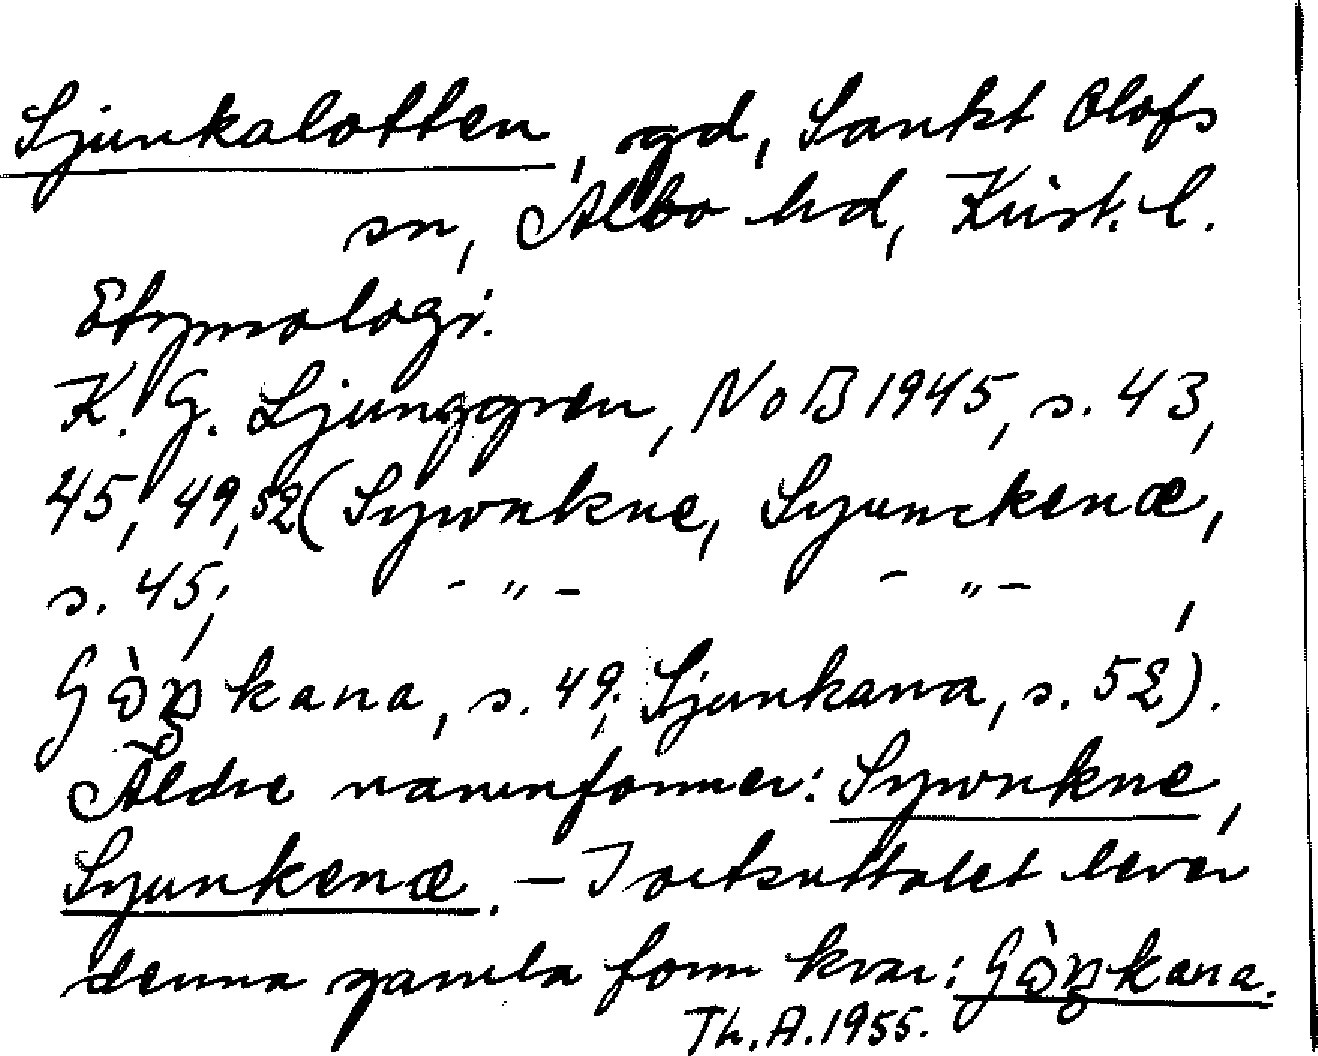 Sjunkalotten, gd, Sankt Olofs
sn, Albo hd, Krist. l.
Etymologi.
K. G. Ljunggren, NoB 1945, s. 43,
45, 49, 52 (Sywnkne, Syunckenæ,
s. 45; - „ - - „ - ,
kana, s. 49; Sjunkana, s. 52).
Äldre namnformer: Sywnkne,
Syunkenæ. – I ortsuttalet lever
denna gamla form kvar:
Th. A. 1955.